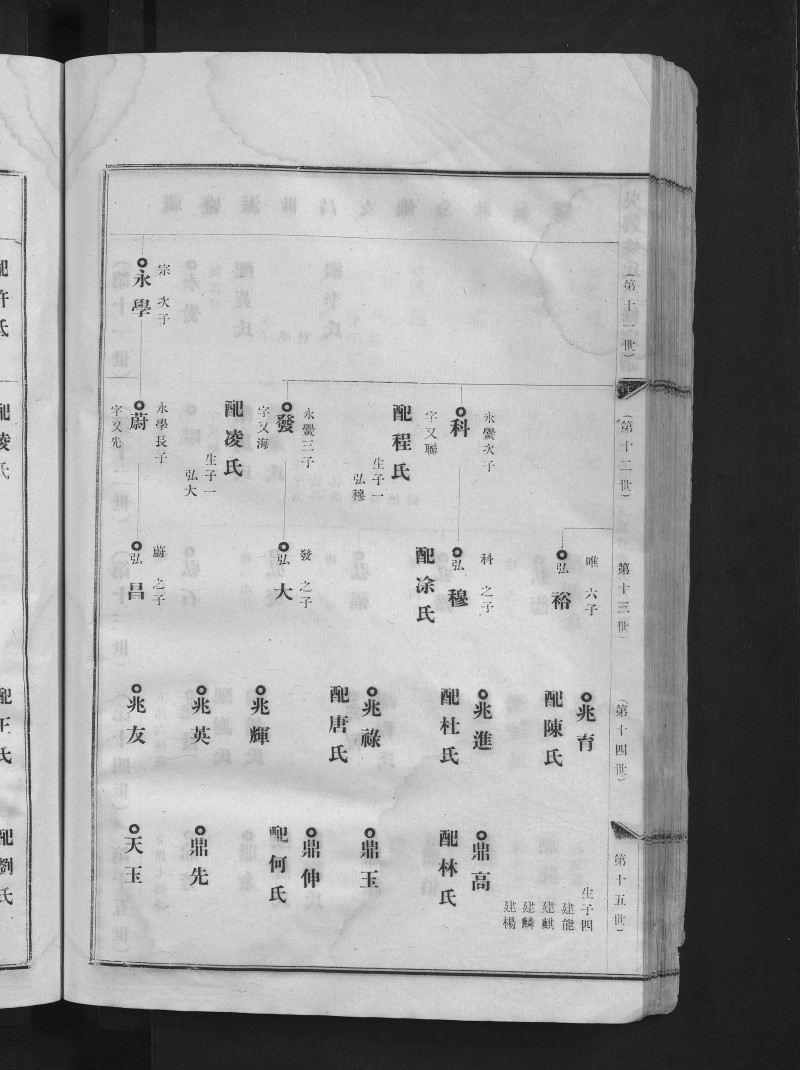 (第十一世)
宗次子
永學
(第十二世)
永黌次子
科
字又聯
配程氏
生子一
弘穆
永黌三子
發
字又海
配凌氏
生子一
弘大
永學長子
蔚
字又先
第十三世
唯六子
弘裕
科之子
弘穆
配凃氏
發之子
弘大
蔚之子
弘昌
(第十四世)
兆育
配陳氏
兆進
配杜氏
兆祿
配唐氏
兆輝
兆英
兆友
第十五世)
生子四
建能
建麒
建麟
建楊
鼎高
配林氏
鼎玉
鼎伸
配何氏
鼎先
天玉
配許氏
配凌氏
配王氏
配劉氏